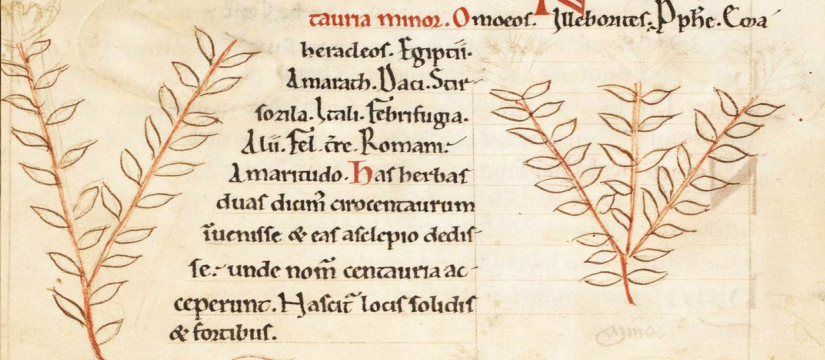 tauria minor. Omoeos. Illeborites. Pphe. Coia
heracleos. Egiptii.
Amarach. Daci. Stir-
sozila. Itali. Febrifugia.
Alii. Fel t̄re. Romani.
Amaritudo. Has herbas
duas dicim̄ cirocentaurum
īuenisse & eas asclepio dedis-
se. unde nom̄ centauria ac-
ceperunt. Hascit̄ locis solidis
& fortibus.